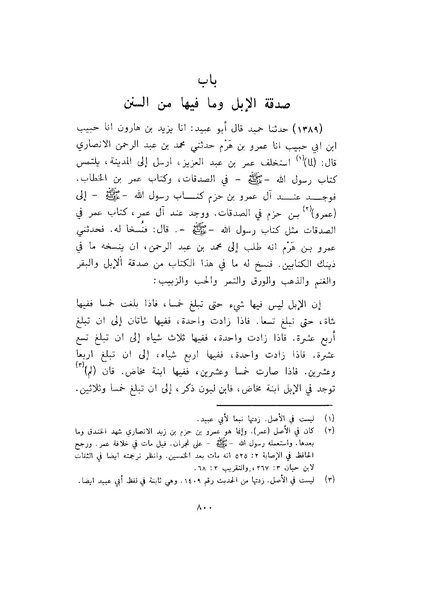 باب
صدقة الإبل وما فيها من السنن
(١٣٨٩) حدثنا حميد قال أبو عبيد: انا يزيد بن هارون انا حبيب
ابن ابي حبيب انا عمرو بن هَرْم حدثني محمد بن عبد الرحمن الانصاري
قال: (لما)(١) استخلف عمر بن عبد العزيز، ارسل إلى المدينة، يلتمس
كتاب رسول الله - ﷺ - في الصدقات، وكتاب عمر بن الخطاب.
فوجد عند آل عمرو بن حزم كتاب رسول الله - ﷺ - إلى
(عمرو)(٢) بن حزم في الصدقات. ووجد عند آل عمر، كتاب عمر في
الصدقات مثل كتاب رسول الله - ﷺ -. قال: فنُسخا له. فحدثني
عمرو بن هَرْم انه طلب إلى محمد بن عبد الرحمن، ان ينسخه ما في
ذينك الكتابين. فنسخ له ما في هذا الكتاب من صدقة الإبل والبقر
والغنم والذهب والورق والتمر والحب والزبيب:
إن الإبل ليس فيها شيء حتى تبلغ خمسا، فاذا بلغت خمسا ففيها
شاة، حتى تبلغ تسعا. فاذا زادت واحدة، ففيها شاتان إلى ان تبلغ
أربع عشرة. فاذا زادت واحدة، ففيها ثلاث شياه إلى ان تبلغ تسع
عشرة. فاذا زادت واحدة، ففيها اربع شياه، إلى ان تبلغ اربعا
وعشرين. فاذا صارت خمسا وعشرين، ففيها ابنة مخاض. فان (لم)(٣)
توجد في الإبل ابنة مخاض، فابن لبون ذكر، إلى ان تبلغ خمسا وثلاثين.
(١) ليست في الأصل. زدتها تبعا لأبي عبيد.
(٢) كان في الأصل (عمر). وإنما هو عمرو بن حزم بن زيد الانصاري شهد الخندق وما
بعدها. واستعمله رسول الله - ﷺ - على نجران. قيل مات في خلافة عمر. ورجح
الحافظ في الإصابة ٢: ٥٢٥ انه مات بعد الخمسين. وانظر ترجمته ايضا في الثقات
لابن حبان ٣: ٢٦٧، والتقريب ٢: ٦٨.
(٣) ليست في الأصل. زدتها من الحديث رقم ١٤٠٩. وهي ثابتة في لفظ أبي عبيد ايضا.
٨٠٠